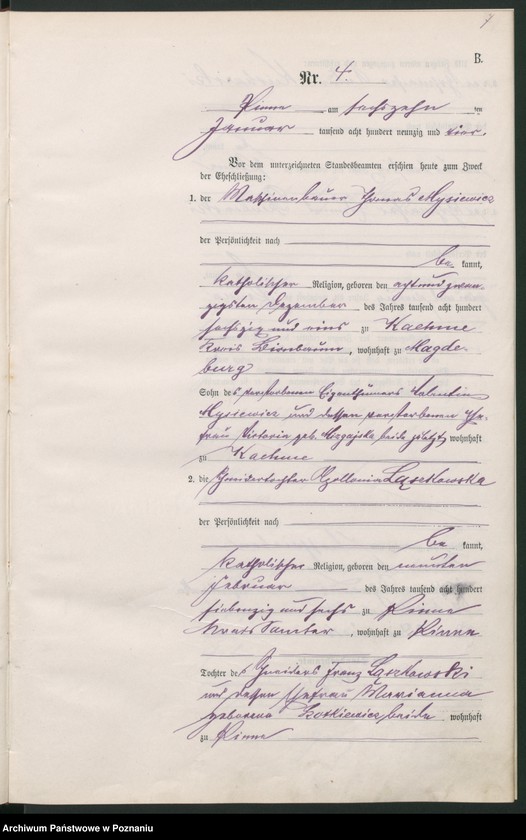 7
B.
Nr. 4.
Pinne am sechszehn ten
Januar tausend acht hundert neunzig und vier.
Vor dem unterzeichneten Standesbeamten erschien heute zum Zweck
der Eheschließung:
1. der Maschinenbauer Thomas Mysiewicz
der Persönlichkeit nach
be kannt,
katholischer Religion, geboren den acht und zwan-
zigsten Dezember des Jahres tausend acht hundert
sechszig und eins zu Kaehme
Kreis Birnbaum, wohnhaft zu Magde-
burg
Sohn des verstorbenen Eigenthümers Valentin
Mysiewicz und dessen verstorbenen Ehe-
frau Victoria geb. beide zuletzt wohnhaft
zu Kaehme
2. die Schneidertochter Apollonia Łączkowska
der Persönlichkeit nach
be kannt,
katholischer Religion, geboren den neunten
Februar des Jahres tausend acht hundert
siebenzig und sechs zu Pinne
Kreis Samter, wohnhaft zu Pinne
Tochter des Schneiders Franz Łączkowski
und dessen Ehefrau Marianna
geborene beide wohnhaft
zu Pinne
Archiwum Państwowe w Poznaniu